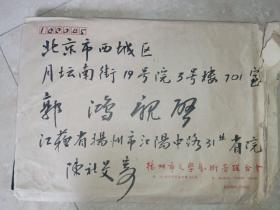 北京市西城区
月坛南街19号院3号楼701室
郭鸿 启
江苏省扬州市江阳中路31号省院
陈社
扬州市文学艺术界联合会